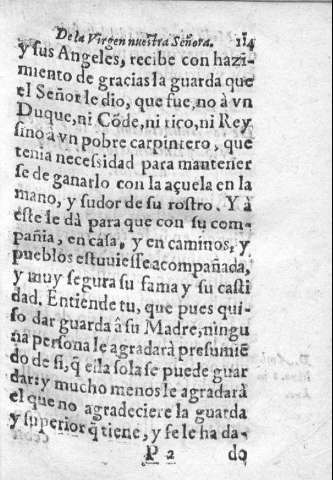 De la Virgen nuestra Señora. 114
y sus Angeles, recibe con hazi-
miento de gracias la guarda que
el Señor le dio, que fue, no à vn
Duque, ni Cõde, ni rico, ni Rey
sino à vn pobre carpintero, que
tenia necessidad para mantener
se de ganarlo con la açuela en la
mano, y sudor de su rostro. Y à
este le dà para que con su com-
pañia, en casa, y en caminos, y
pueblos estuuiesse acompañada,
y muy segura su fama y su casti
dad. Entiende tu, que pues qui-
so dar guarda â su Madre, ningu
na persona le agradarà presumiẽ
do de si, q̃ ella sola se puede guar
dar: y mucho menos le agradarà
el que no agradeciere la guarda
y superior q̃ tiene, y se le ha da-
P 2 do